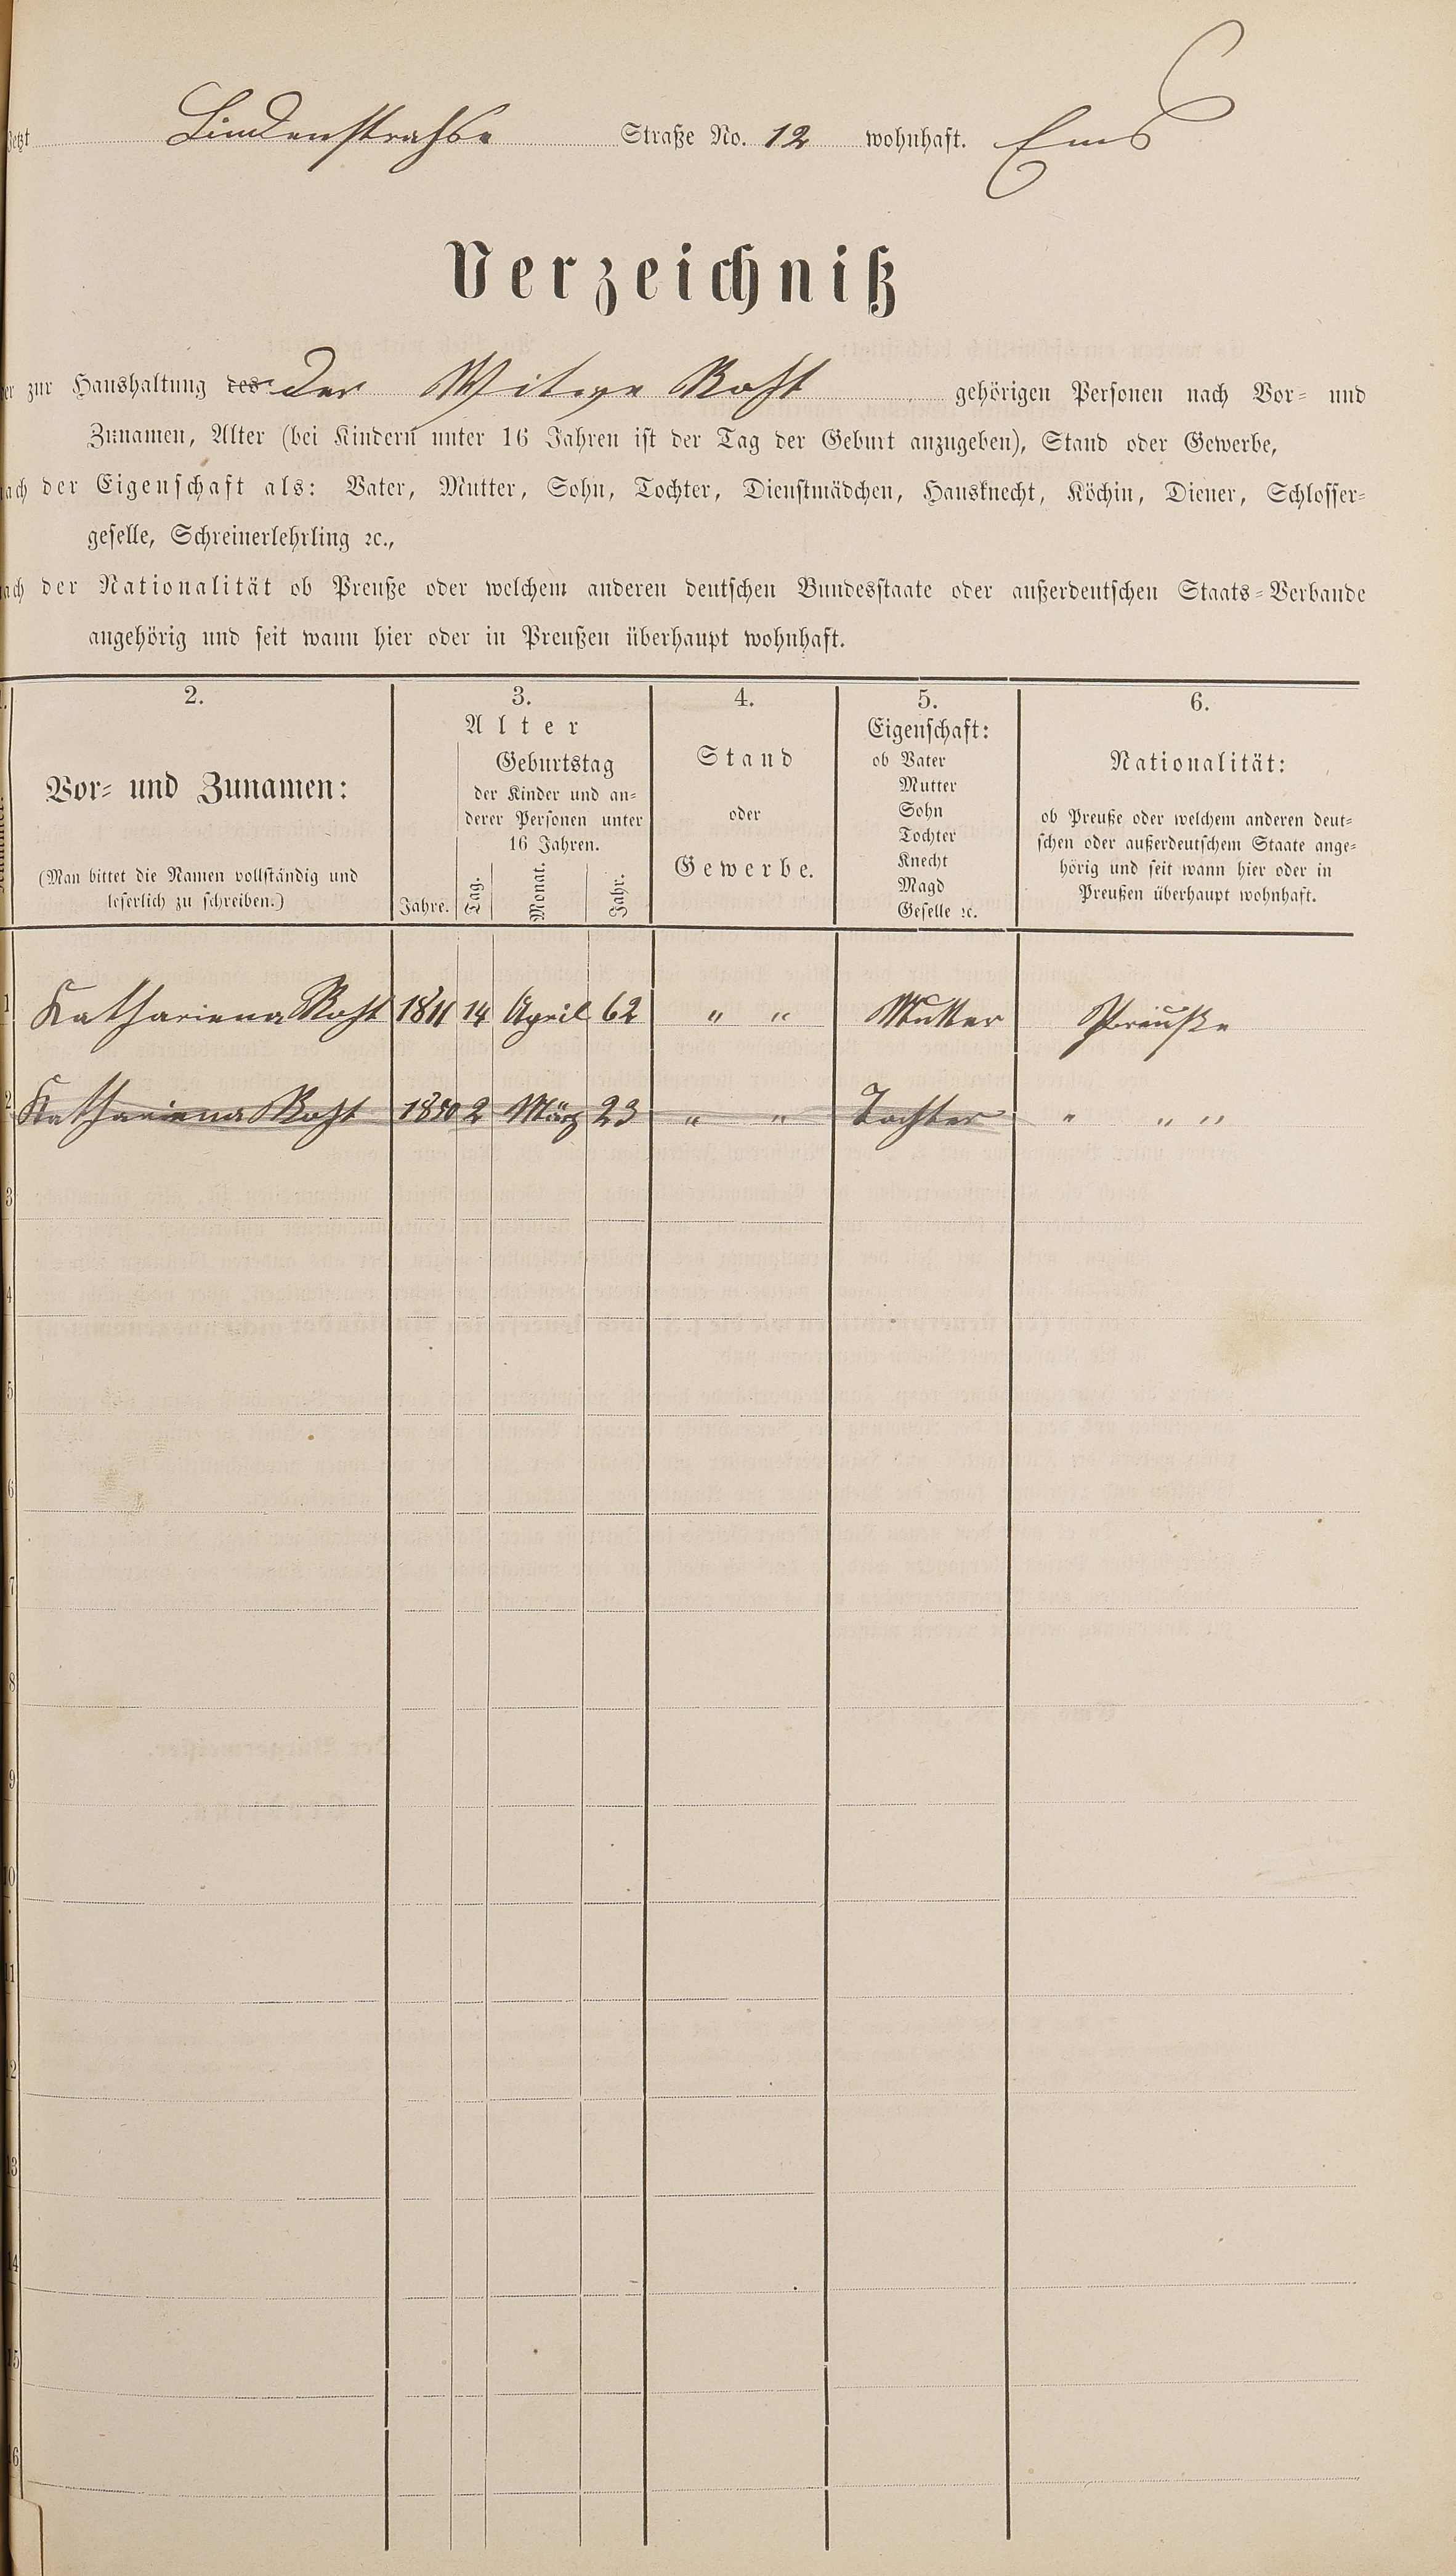 Jetzt Lindenstrahse Straße No. 12 wohnhaft. Ems
Verzeichniß
der zur Haushaltung des der Witwe Roht gehörigen Personen nach Vor- und
Zunamen, Alter (bei Kindern unter 16 Jahren ist der Tag der Geburt anzugeben), Stand oder Gewerbe,
nach der Eigenschaft als: Vater, Mutter, Sohn, Tochter, Dienstmädchen, Hausknecht, Köchin, Diener, Schlosser-
geselle, Schreinerlehrling ꝛc.,
nach der Nationalität ob Preuße oder welchem anderen deutschen Bundesstaate oder außerdeutschen Staats-Verbande
angehörig und seit wann hier oder in Preußen überhaupt wohnhaft.
2.
Vor- und Zunamen:
(Man bittet die Namen vollständig und
leserlich zu schreiben.)
3.
Alter
Geburtstag
der Kinder und an-
derer Personen unter
16 Jahren.
Jahre. Tag. Monat. Jahr.
4.
Stand
oder
Gewerbe.
5.
Eigenschaft:
ob Vater
Mutter
Sohn
Tochter
Knecht
Magd
Geselle ꝛc.
6.
Nationalität:
ob Preuße oder welchem anderen deut-
schen oder außerdeutschem Staate ange-
hörig und seit wann hier oder in
Preußen überhaupt wohnhaft.
1 Kathariena Roht 1811 14 April 62 " " Mutter Preuße
2 Kathariena Roht 1850 2 März 23 " " Tochter " " "
3
4
5
6
7
8
9
10
11
12
13
14
15
16